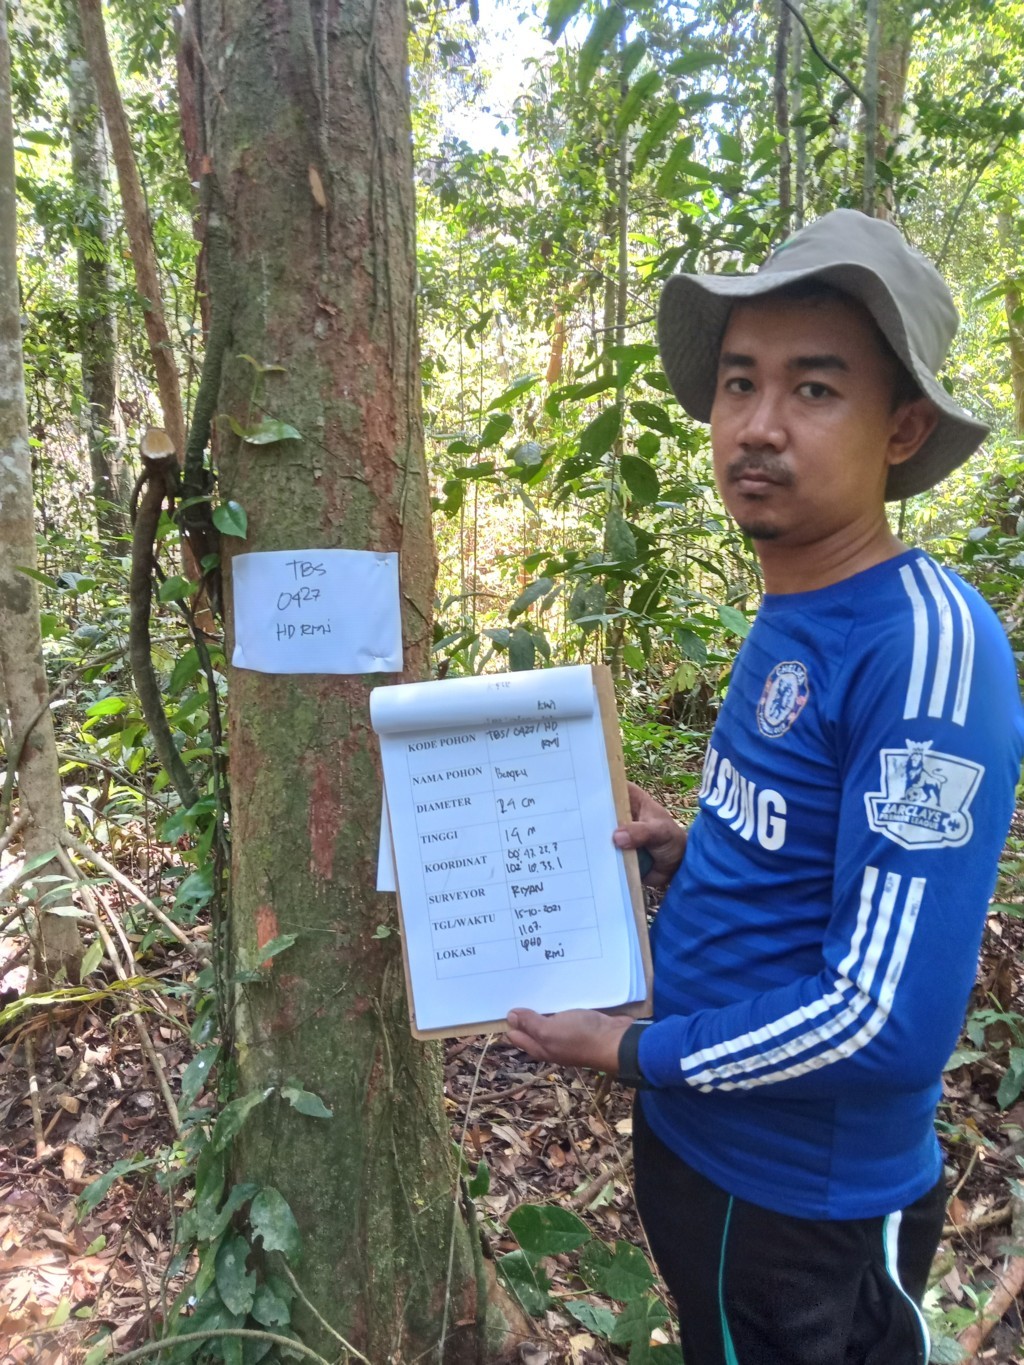 TBS
0427
HD RMJ
RMJ
KODE POHON TBS/ 0427/ HD
RMJ
NAMA POHON
DIAMETER 24 cm
TINGGI 19 m
KOORDINAT 00°. 42. 22. 7
102° 10. 33. 1
SURVEYOR RIYAN
TGL/WAKTU 15-10-2021
1107.
LOKASI LPHD
RMJ
CHELSEA
MSUNG
BARCLAYS
PREMIER LEAGUE